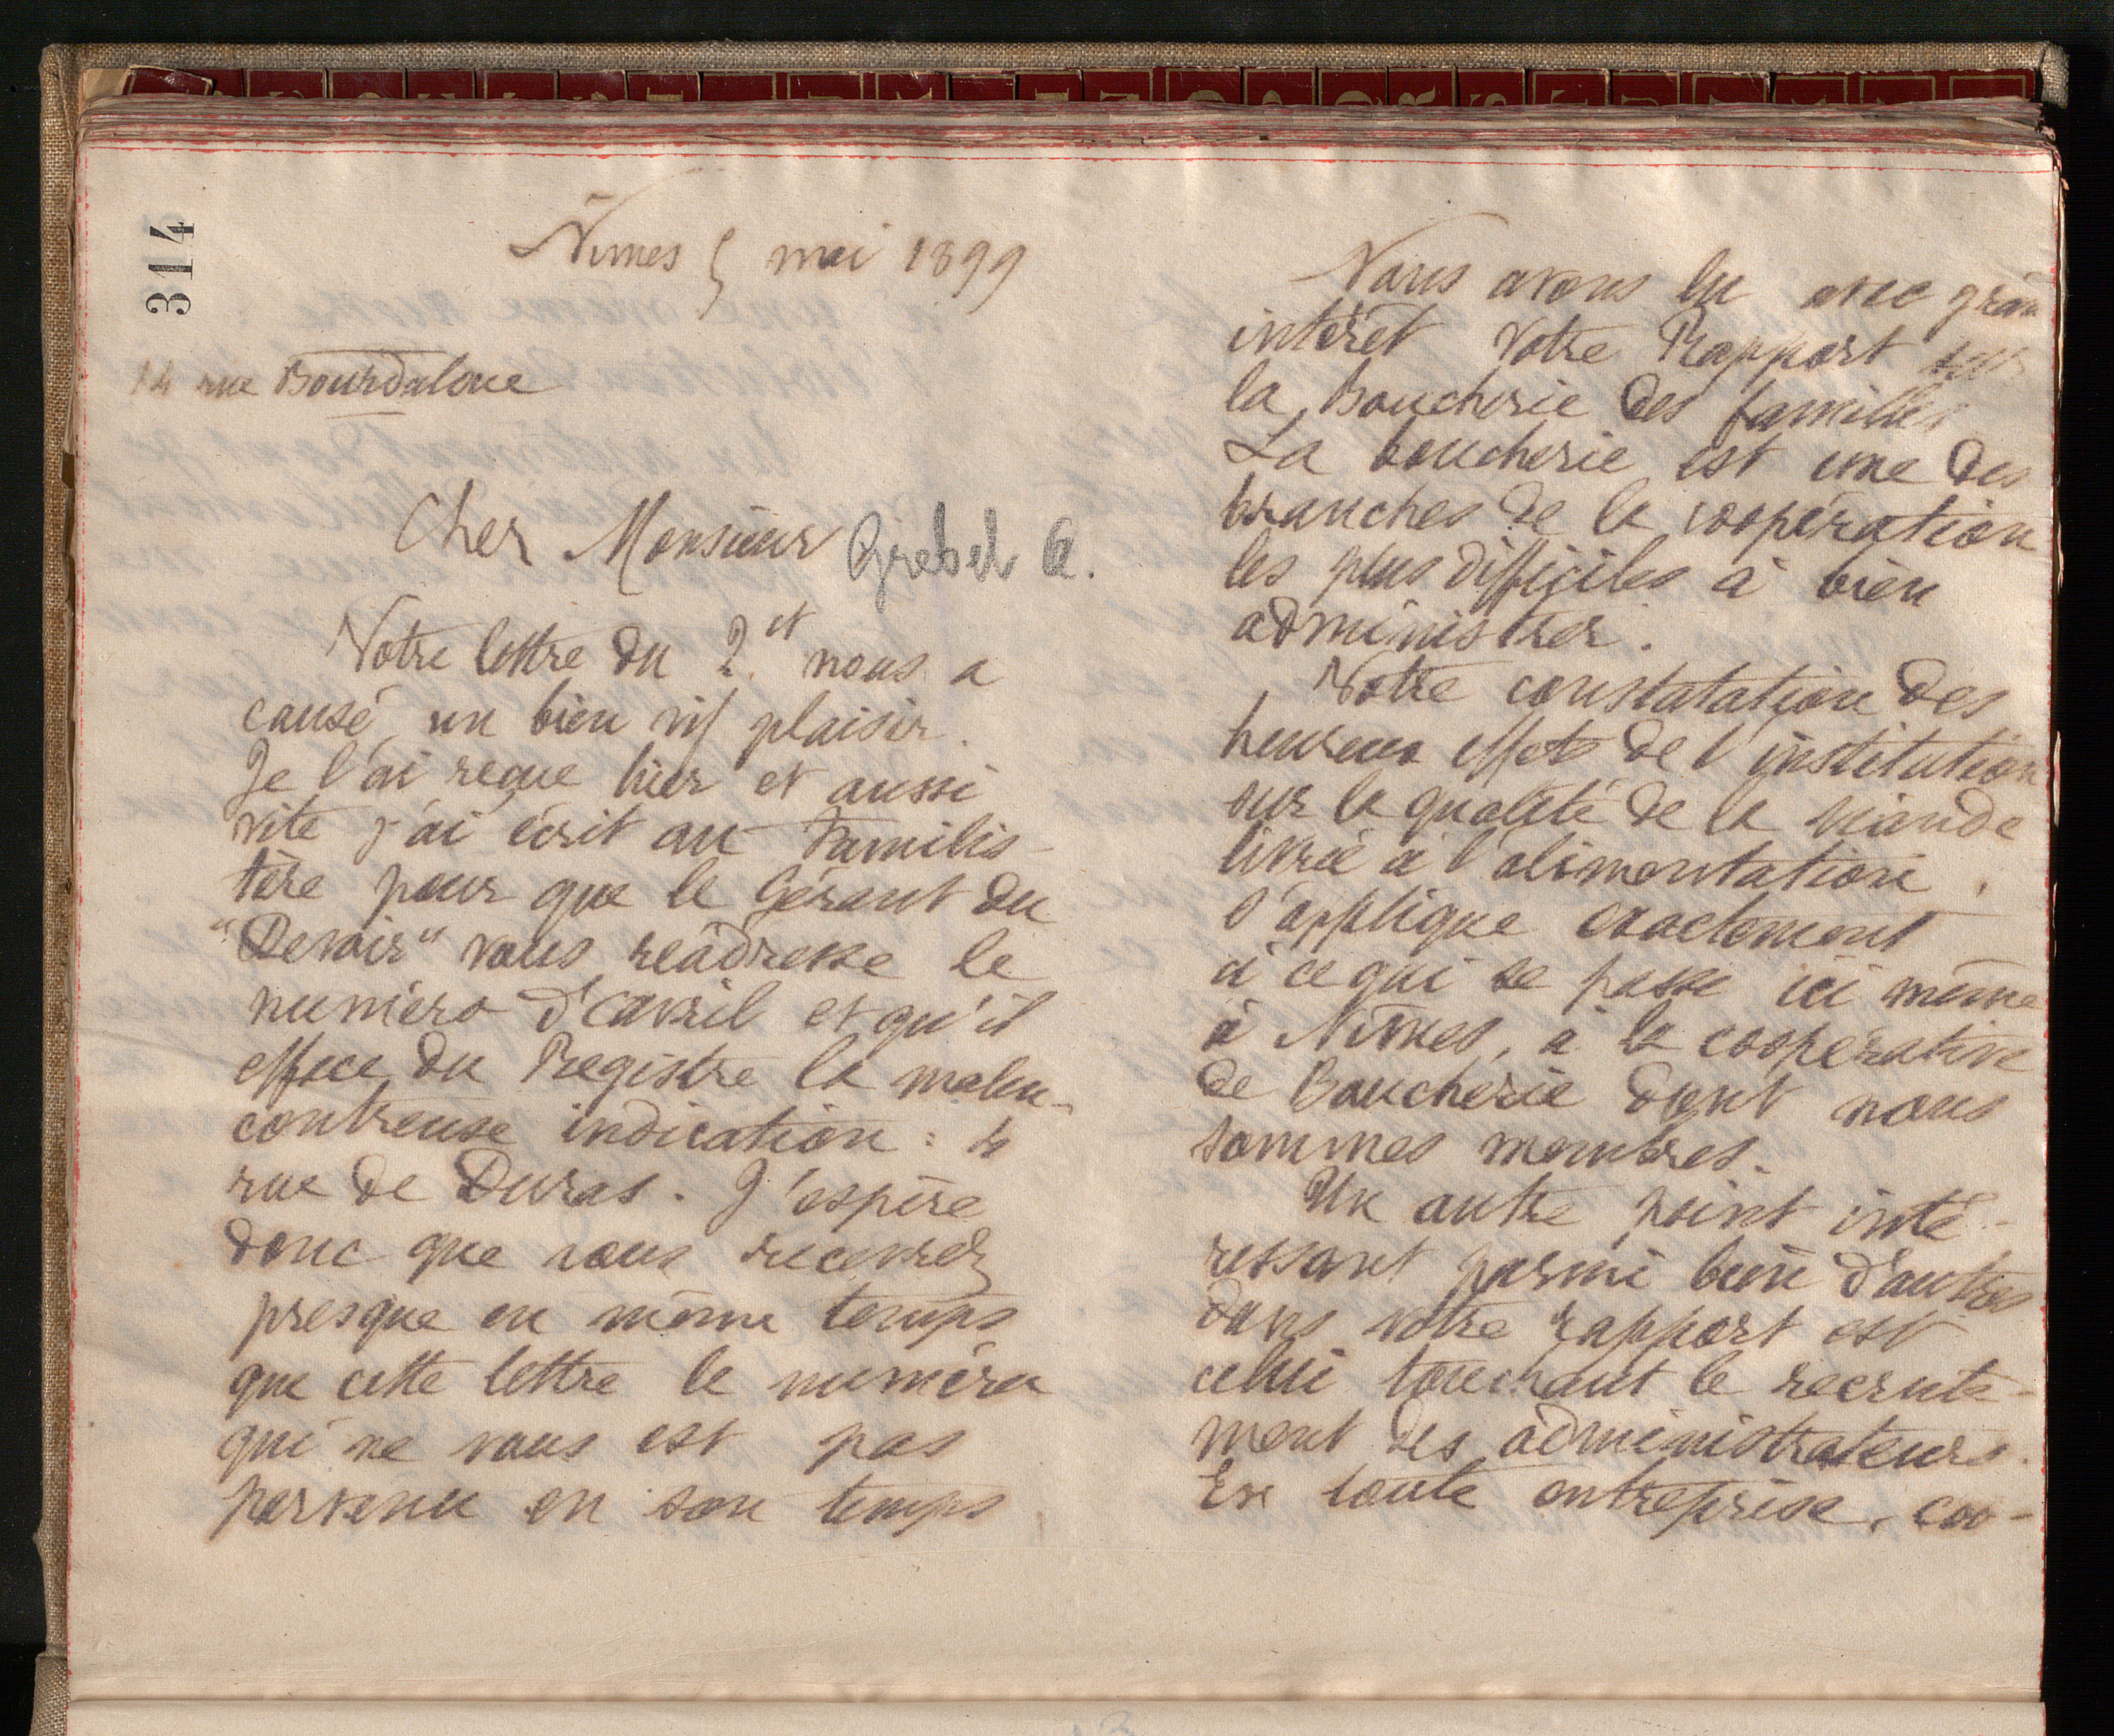 314
Nîmes 5 mai 1899
14 rue Bourdaloue
Cher Monsieur Grebel A.
Votre lettre du 2 ct nous a
causé un bien vif plaisir.
Je l'ai reçue hier et aussi
vite j'ai écrit au Familis-
tère pour que le Gérant du
"Devoir" vous réadresse le
numéro d'avril et qu'il
efface du Registre la malen-
contreuse indication : 4
rue de Duras. J'espère
donc que vous recevrez
presque en même temps
que cette lettre le numéro
qui ne vous est pas
parvenu en son temps
Nous avons lu avec gran
intérêt votre Rapport sur
la Boucherie des familles
La boucherie est une des
branches de la coopération
les plus difficiles à bien
administrer.
Votre constatation des
heureux effets de l'institution
sur la qualité de la viande
livrée à l'alimentation,
s'applique exactement
à ce qui se passe ici même
à Nîmes, à la coopérative
de Boucherie dont nous
sommes membres.
Un autre point inté-
ressant parmi bien d'autres
dans votre rapport est
celui touchant le recrute-
ment des administrateurs.
En toute entreprise, coo-